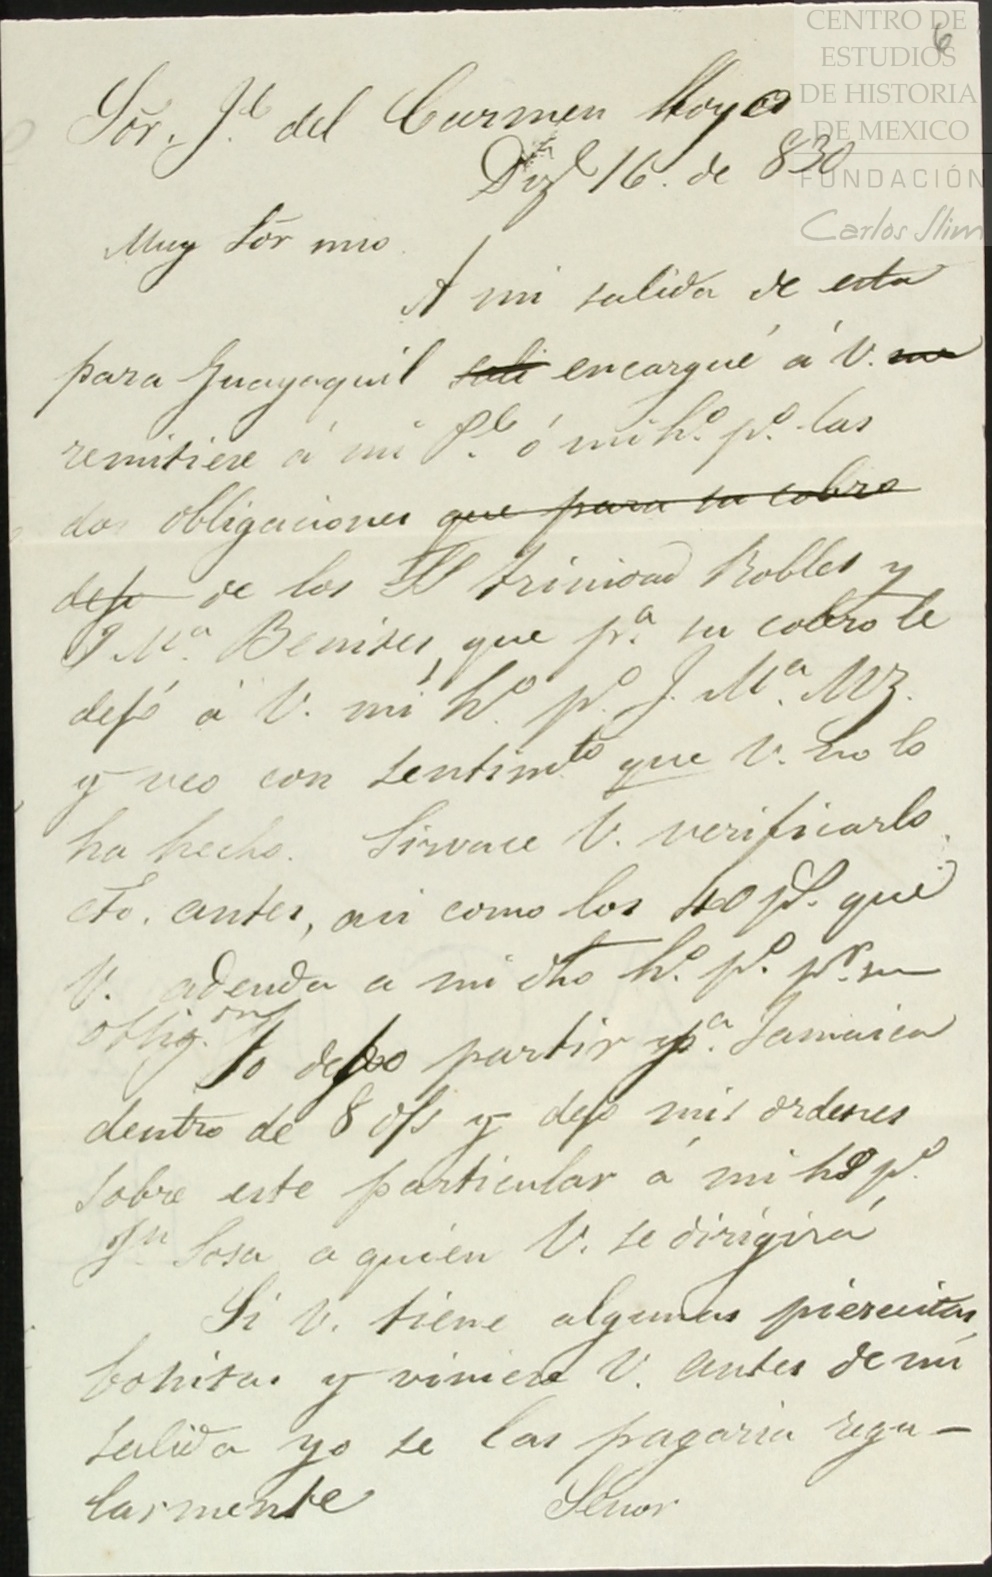 CENTRO DE
ESTUDIOS
DE HISTORIA
DE MEXICO
FUNDACIÓN
Carlos Slim
6
Sōr. J.e del Carmen Hoyos
Dize 16. de 830
Muy Sōr mio
A mi salida de esta
para Guayaquil sali encargué á V. me
remitiere á mi P.e ó mi h.o p.o las
dos obligaciones que para su cobro
dejo de los SS Trinidad Robles y
J M.a Benites, que p.a su cobro le
dejó á V. mi h.o p.o J. M.a Mz.
y veo con sentimto que V. no lo
ha hecho. Sirvace V. verificarlo
cto. antes, asi como los 40 ps. que
V. adeuda a mi dho h.o p.o pr. su
oblig.on Yo debo partir p.a Jamaica
dentro de 8 ds y dejo mis ordenes
sobre este particular á mi ho p.o
Jn Sosa a quien V. se dirigirá
Si V. tiene algunas piezecitas
bonitas y viniere V. antes de mi
salida yo se las pagaria regu-
larmente Señor